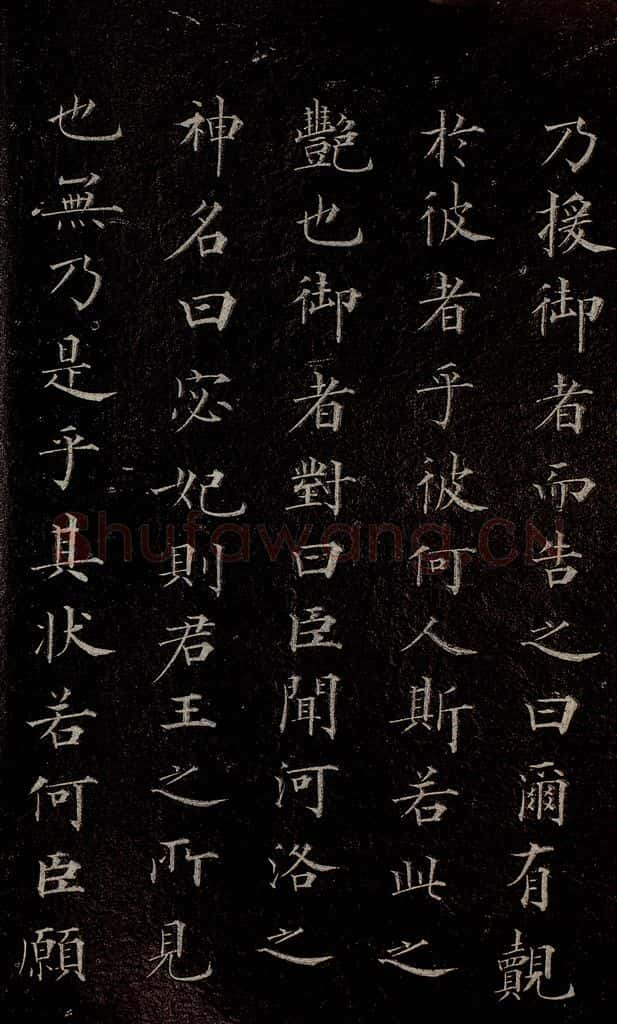 乃援御者而告之曰爾有覿
於彼者乎彼何人斯若此之
豔也御者對曰臣聞河洛之
神名曰宓妃則君王之所見
也無乃是乎其状若何臣願
Shufawang.CN